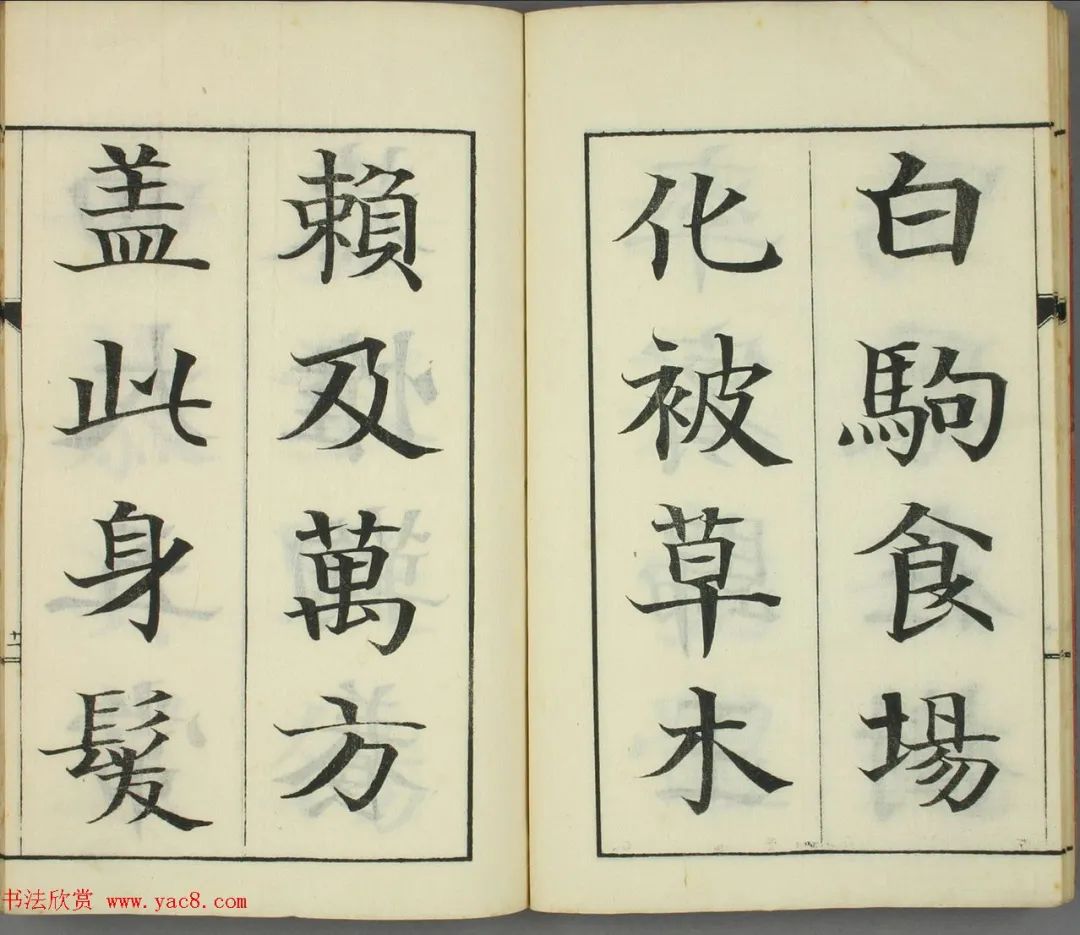 白駒食場
化被草木
賴及萬方
盖此身髮
十一
书法欣赏 www.yac8.com